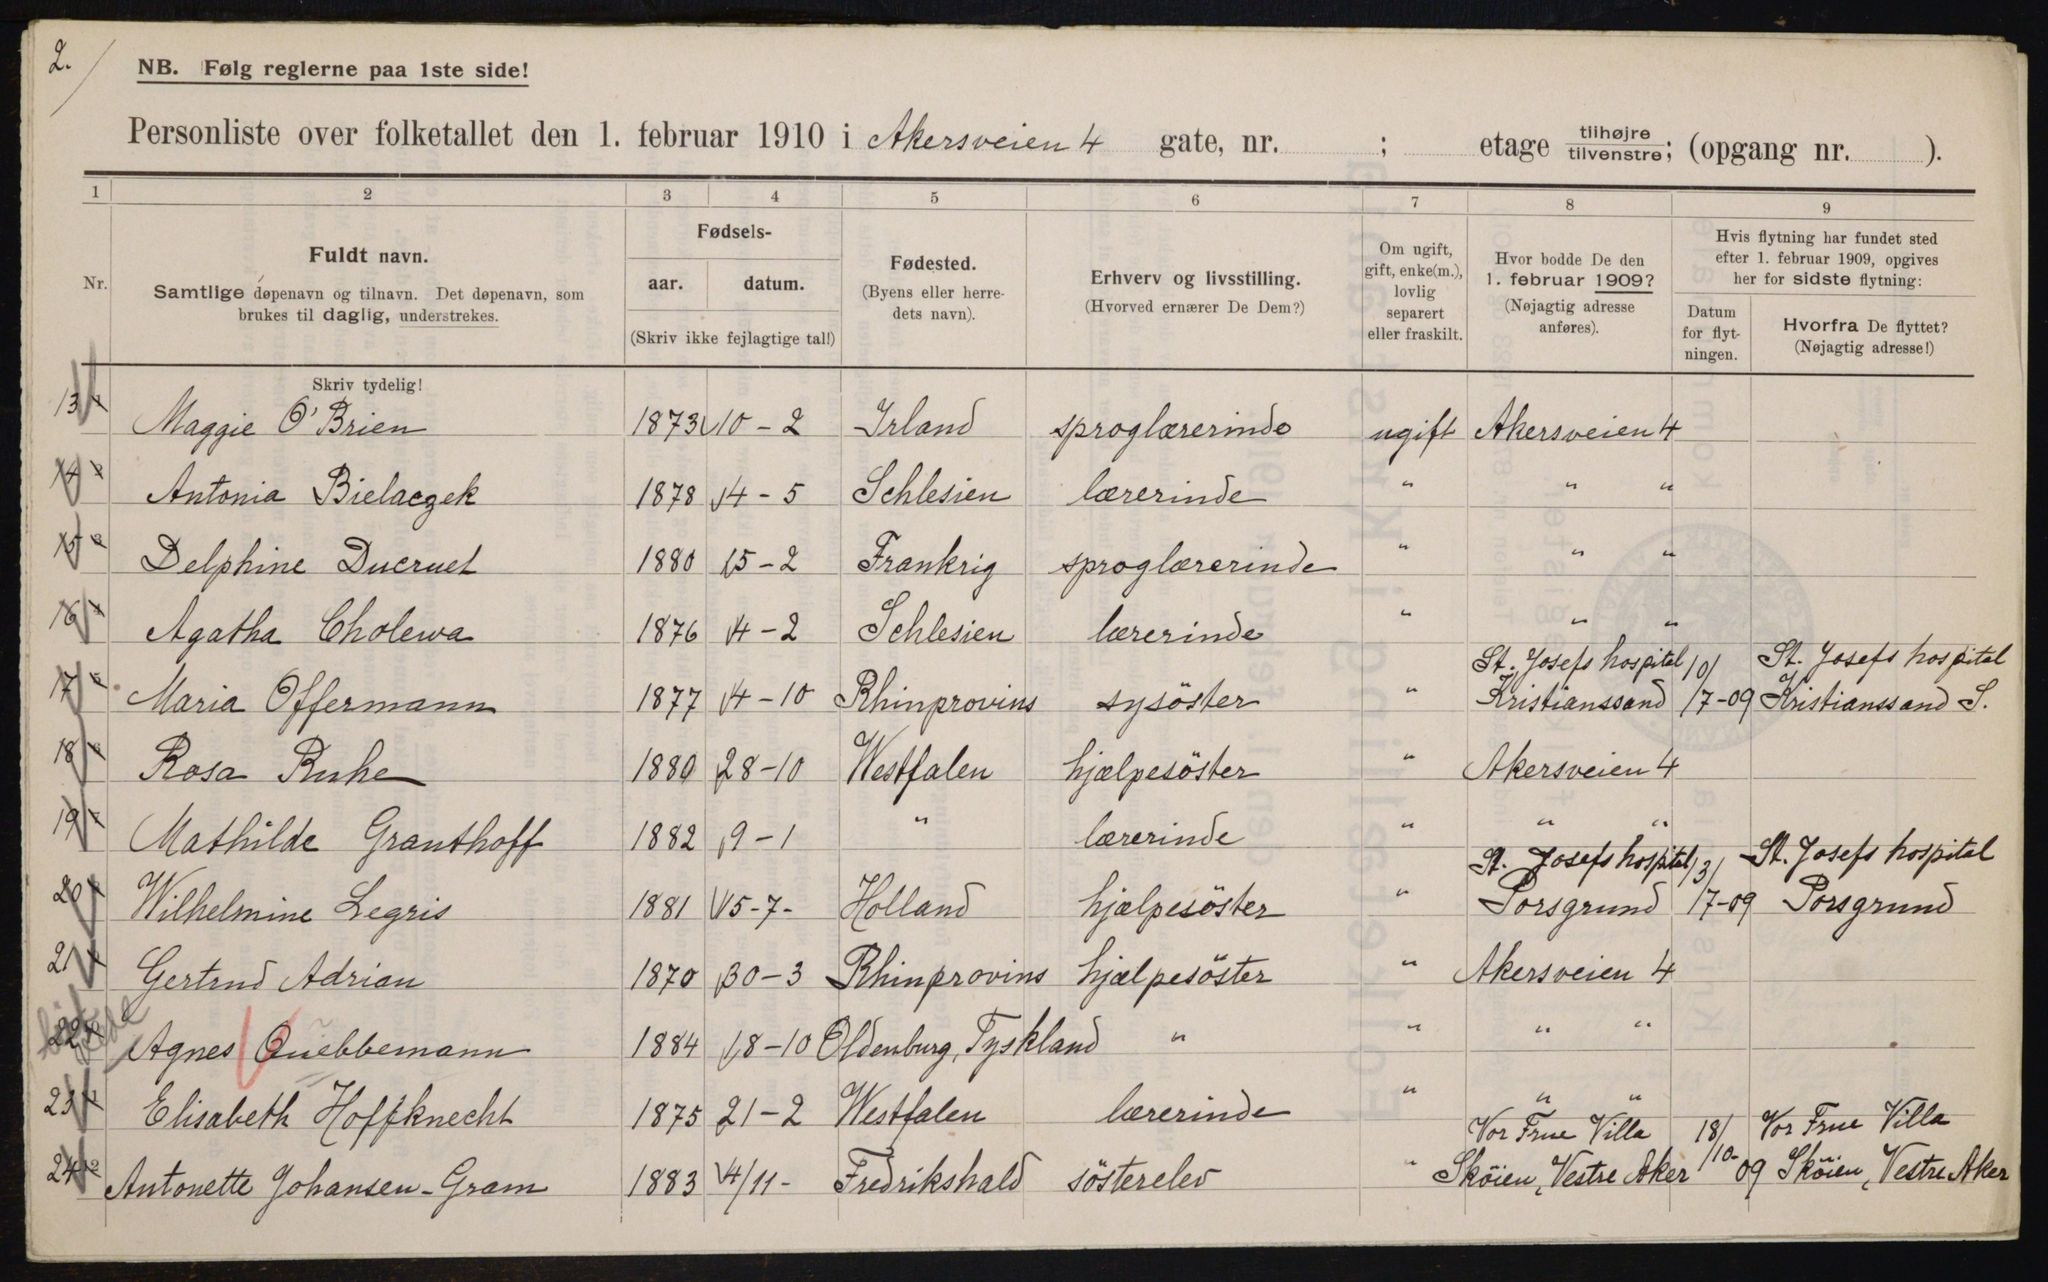 2.
NB. Følg reglerne paa 1ste side!
Personliste over folketallet den 1. februar 1910 i Akersveien 4 gate, nr. ; etage tilhøjre/tilvenstre; (opgang nr. ).
1 2 3 4 5 6 7 8 9
Nr.
Fuldt navn.
Samtlige døpenavn og tilnavn. Det døpenavn, som
brukes til daglig, understrekes.
Skriv tydelig!
Fødsels-
aar. datum.
(Skriv ikke fejlagtige tal!)
Fødested.
(Byens eller herre-
dets navn).
Erhverv og livsstilling.
(Hvorved ernærer De Dem?)
Om ugift,
gift, enke(m.),
lovlig
separert
eller fraskilt.
Hvor bodde De den
1. februar 1909?
(Nøjagtig adresse
anføres).
Hvis flytning har fundet sted
efter 1. februar 1909, opgives
her for sidste flytning:
Datum
for flyt-
ningen.
Hvorfra De flyttet?
(Nøjagtig adresse!)
13 Maggie O'Brien 1873 10-2 Irland sproglærerinde ugift Akersveien 4
14 Antonia Bielaczek 1878 4-5 Schlesien lærerinde " " "
15 Delphine Ducruet 1880 5-2 Frankrig sproglærerinde " " "
16 Agatha Cholewa 1876 4-2 Schlesien lærerinde " " "
St. Josefs hospital 10/ St. Josefs hospital
17 Maria Offermann 1877 4-10 Rhinprovins sysöster " Kristianssand 7-09 Kristianssand S.
18 Rosa Ruhe 1880 28-10 Westfalen hjælpesöster " Akersveien 4
19 Mathilde Granthoff 1882 9-1 " lærerinde " " "
St. Josefs hospital 13/ St. Josefs hospital
20 Wilhelmine Legris 1881 15-7- Holland hjælpesöster " Porsgrund 7-09 Porsgrund
21 Gertrud Adrian 1870 30-3 Rhinprovins hjælpesöster " Akersveien 4
22 Agnes Quebbemann 1884 18-10 Oldenburg, Tyskland " " " "
23 Elisabeth Hoffknecht 1875 21-2 Westfalen lærerinde " " "
Vor Frue Villa 18/ Vor Frue Villa
24 Antonette Johansen-Gram 1883 4/11- Fredrikshald sösterelev " Sköien, Vestre Aker 10-09 Sköien, Vestre Aker